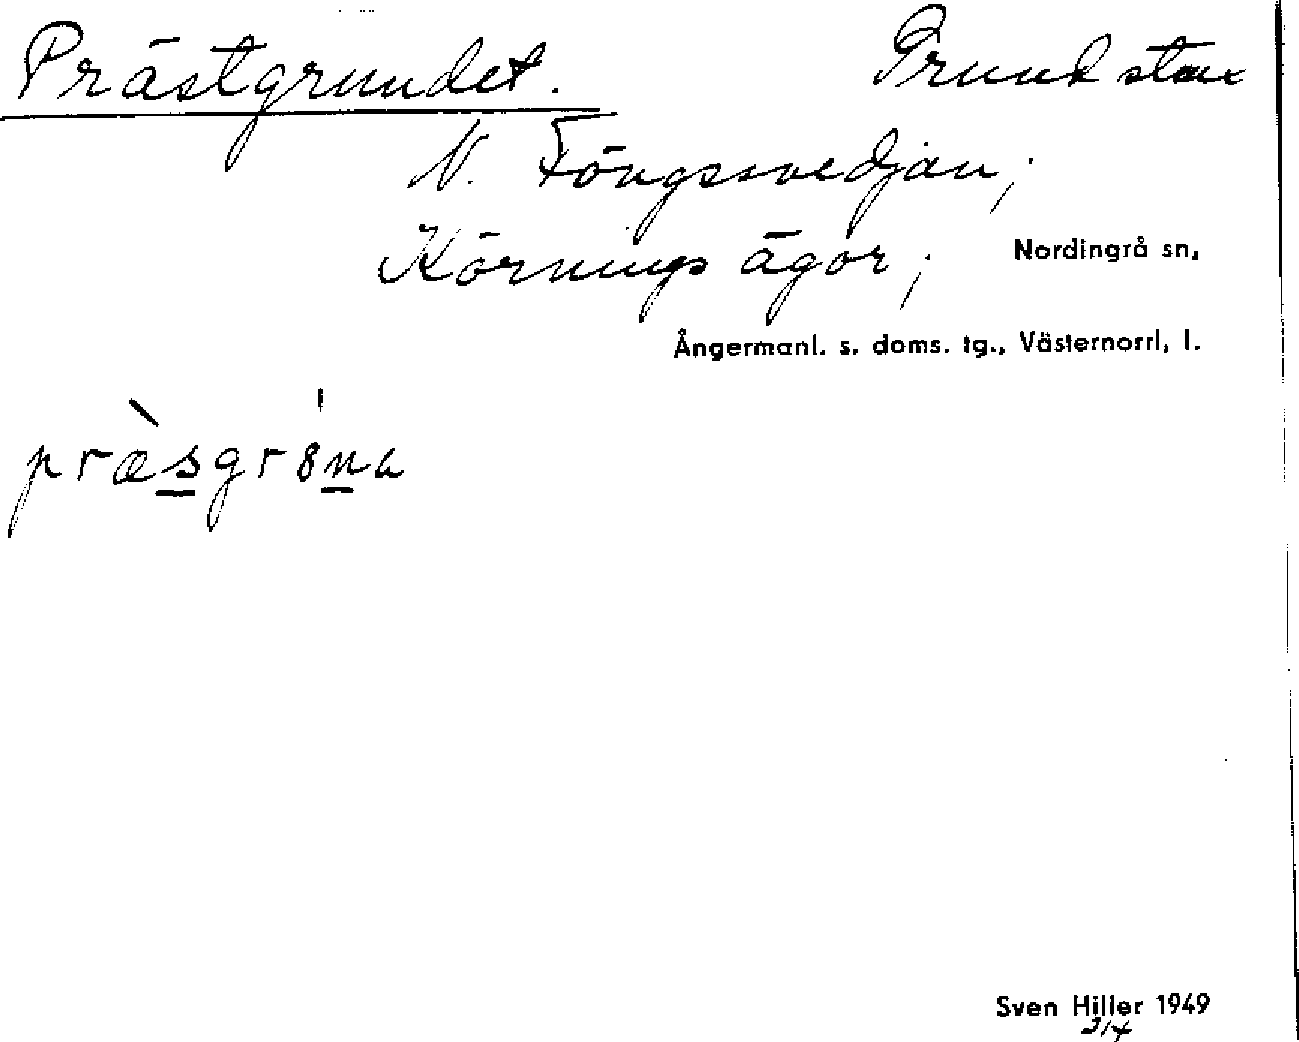 Prästgrundet.
N. Föngssvedjan;
Körnings ägor;
Nordingrå sn,
Ångermanl. s. doms. tg., Västernorrl, l.
præsgrina
Sven Hiller 1949